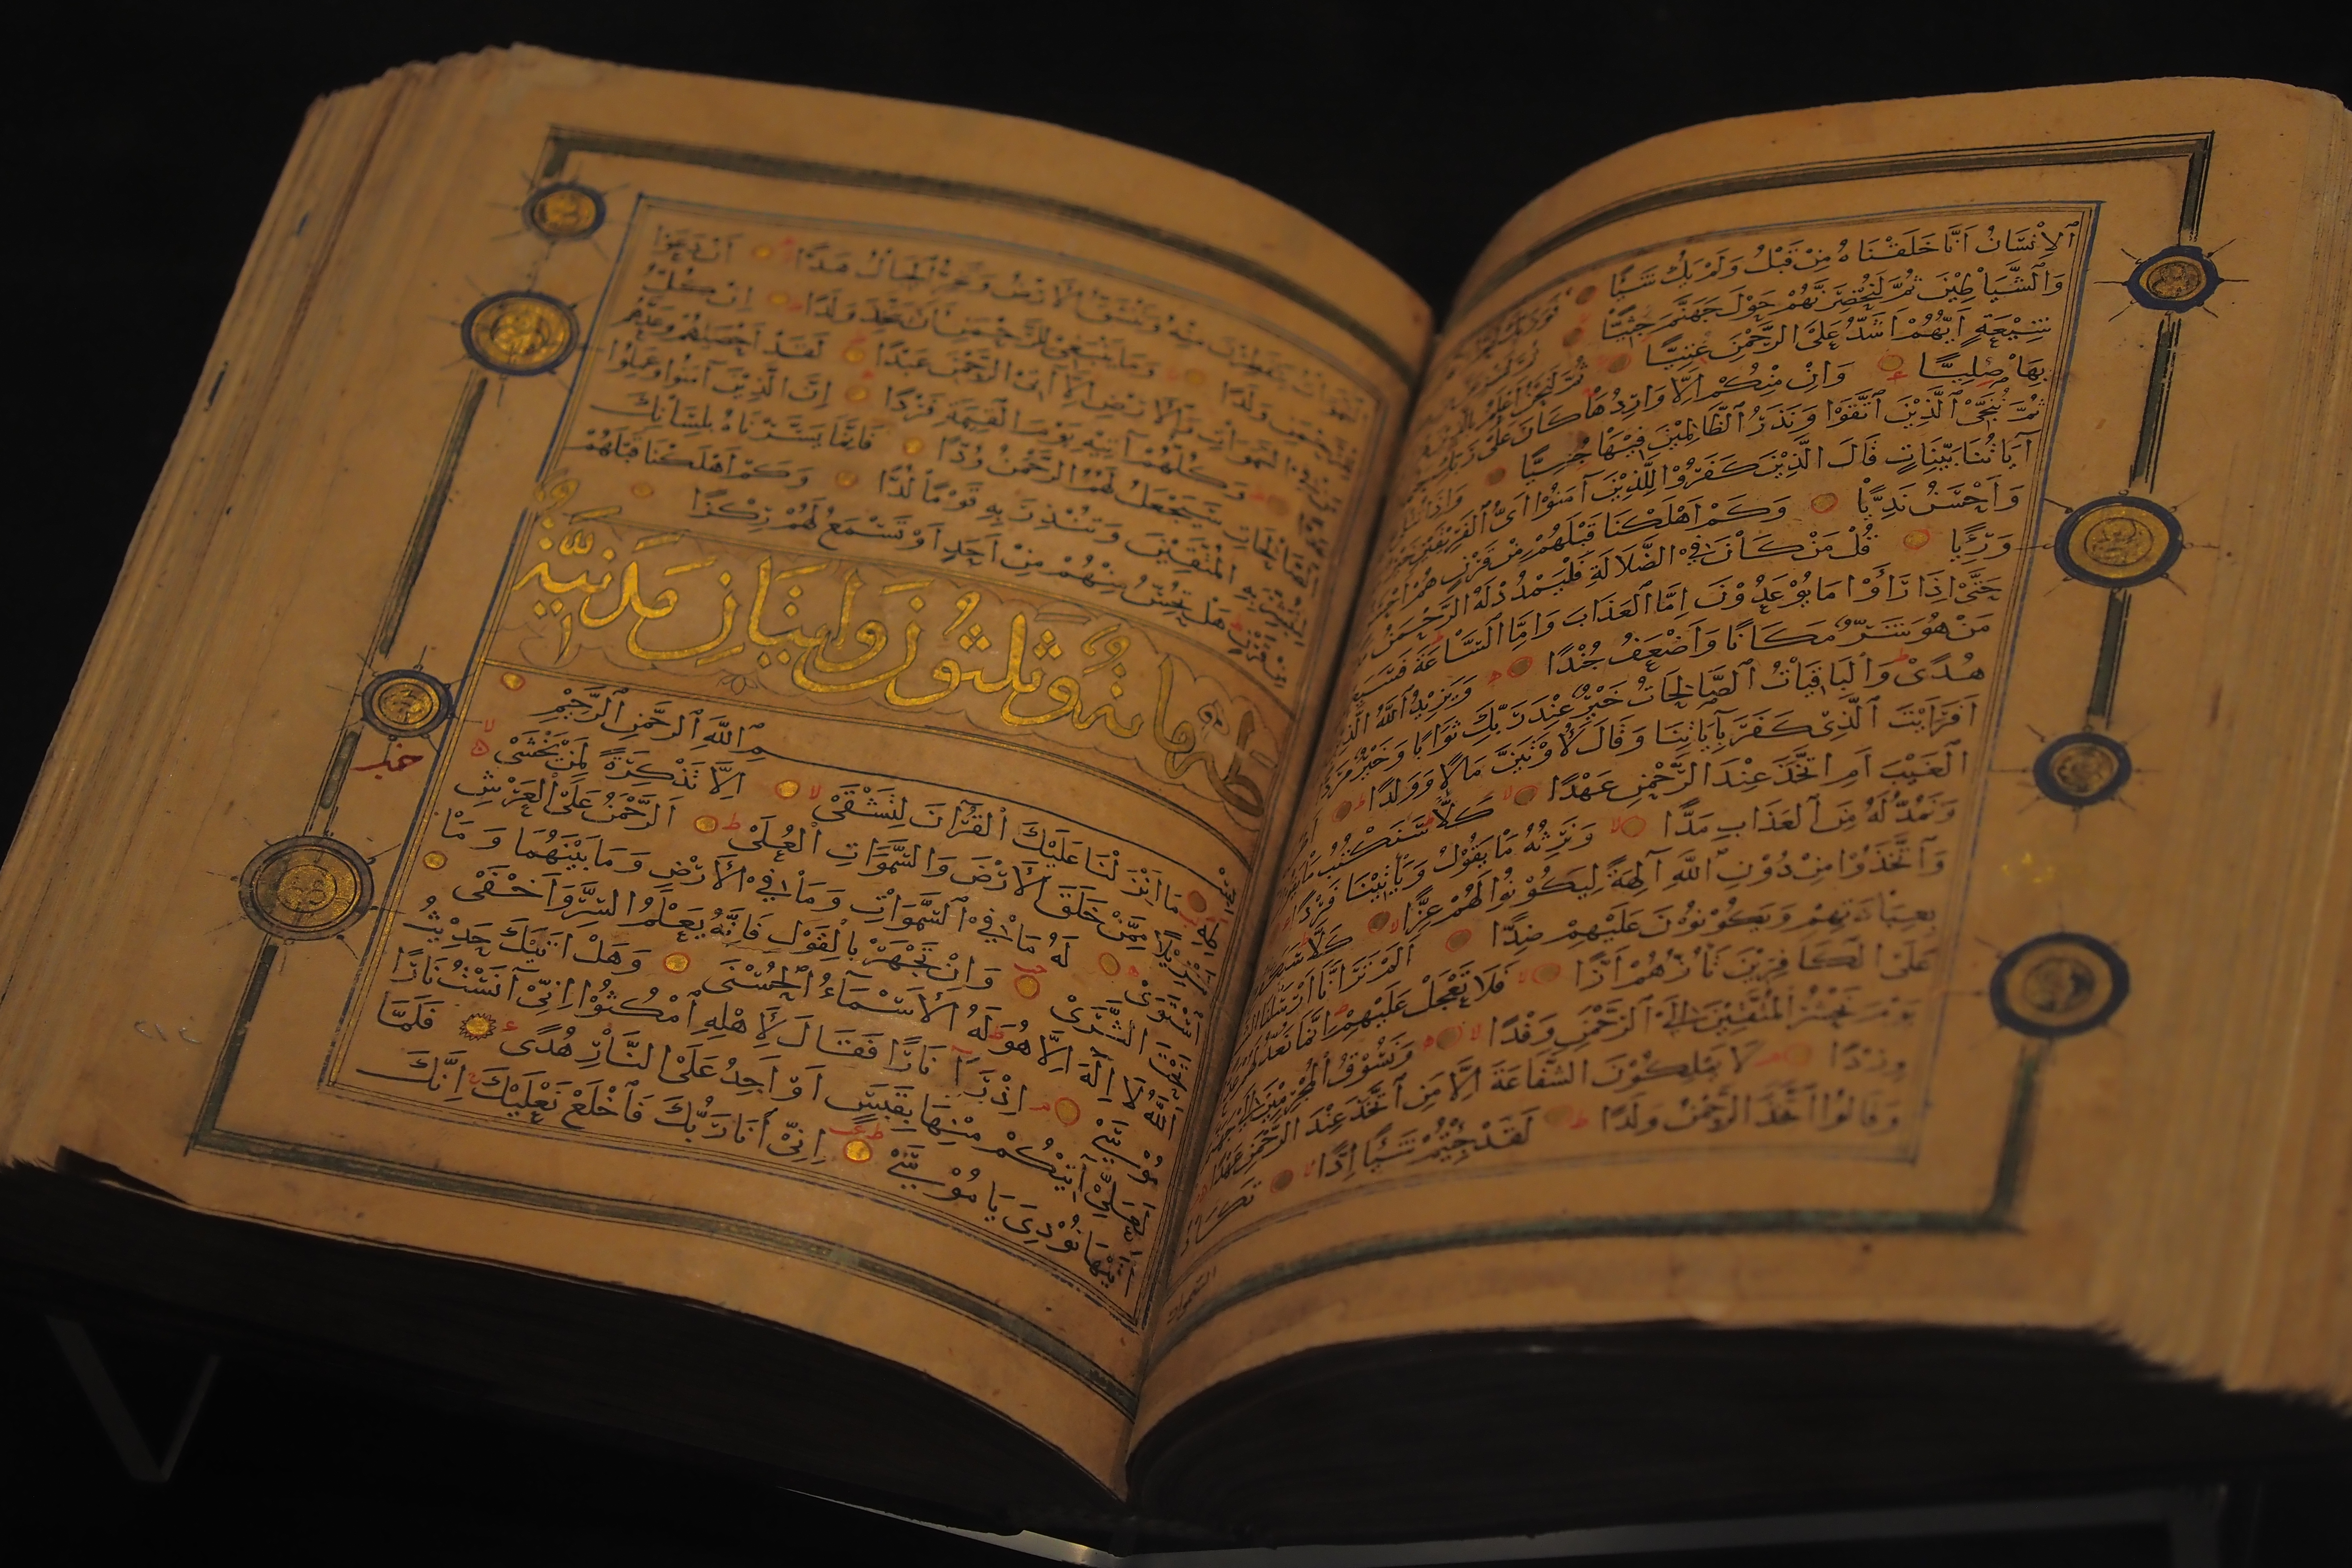 ٱلْاِنْسَانُ اَنَّا خَلَقْنَاهُ مِنْ قَبْلُ وَلَمْ يَكُ شَيْـًٔا فَوَرَبِّكَ
وَالشَّيَاطِيْنَ ثُمَّ لَنُحْضِرَنَّهُمْ حَوْلَ جَهَنَّمَ جِثِيًّا
شِيْعَةٍ اَيُّهُمْ اَشَدُّ عَلَى الرَّحْمٰنِ عِتِيًّا ثُمَّ لَنَحْنُ اَعْلَمُ
بِهَا صِلِيًّا وَاِنْ مِنْكُمْ اِلَّا وَارِدُهَا كَانَ عَلٰى رَبِّكَ
ثُمَّ نُنَجِّى الَّذِيْنَ اتَّقَوْا وَنَذَرُ الظَّالِمِيْنَ فِيْهَا جِثِيًّا وَاِذَا
آيَاتُنَا بَيِّنَاتٍ قَالَ الَّذِيْنَ كَفَرُوْا لِلَّذِيْنَ آمَنُوْا اَىُّ الْفَرِيْقَيْنِ خَيْرٌ
وَاَحْسَنُ نَدِيًّا وَكَمْ اَهْلَكْنَا قَبْلَهُمْ مِنْ قَرْنٍ هُمْ
وَرِءْيًا قُلْ مَنْ كَانَ فِى الضَّلَالَةِ فَلْيَمْدُدْ لَهُ الرَّحْمٰنُ
حَتّٰى اِذَا رَاَوْا مَا يُوْعَدُوْنَ اِمَّا الْعَذَابَ وَاِمَّا السَّاعَةَ
مَنْ هُوَ شَرٌّ مَكَانًا وَاَضْعَفُ جُنْدًا وَيَزِيْدُ اللّٰهُ الَّذِيْنَ
هُدًى وَالْبَاقِيَاتُ الصَّالِحَاتُ خَيْرٌ عِنْدَ رَبِّكَ ثَوَابًا وَخَيْرٌ مَرَدًّا
اَفَرَاَيْتَ الَّذِىْ كَفَرَ بِآيَاتِنَا وَقَالَ لَاُوْتَيَنَّ مَالًا وَوَلَدًا
الْغَيْبَ اَمِ اتَّخَذَ عِنْدَ الرَّحْمٰنِ عَهْدًا كَلَّا سَنَكْتُبُ مَا يَقُوْلُ
وَنَمُدُّ لَهُ مِنَ الْعَذَابِ مَدًّا وَنَرِثُهُ مَا يَقُوْلُ وَيَأْتِيْنَا فَرْدًا
وَاتَّخَذُوْا مِنْ دُوْنِ اللّٰهِ آلِهَةً لِيَكُوْنُوْا لَهُمْ عِزًّا كَلَّا
بِعِبَادَتِهِمْ وَيَكُوْنُوْنَ عَلَيْهِمْ ضِدًّا اَلَمْ تَرَ اَنَّا اَرْسَلْنَا
عَلَى الْكَافِرِيْنَ تَؤُزُّهُمْ اَزًّا فَلَا تَعْجَلْ عَلَيْهِمْ اِنَّمَا نَعُدُّ لَهُمْ
يَوْمَ نَحْشُرُ الْمُتَّقِيْنَ اِلَى الرَّحْمٰنِ وَفْدًا وَنَسُوْقُ الْمُجْرِمِيْنَ
وِرْدًا لَا يَمْلِكُوْنَ الشَّفَاعَةَ اِلَّا مَنِ اتَّخَذَ عِنْدَ الرَّحْمٰنِ عَهْدًا
وَقَالُوا اتَّخَذَ الرَّحْمٰنُ وَلَدًا لَقَدْ جِئْتُمْ شَيْـًٔا اِدًّا تَكَادُ
السَّمٰوَاتُ
السَّمٰوَاتُ يَتَفَطَّرْنَ مِنْهُ وَتَنْشَقُّ الْاَرْضُ وَتَخِرُّ الْجِبَالُ هَدًّا اَنْ دَعَوْا
لِلرَّحْمٰنِ وَلَدًا وَمَا يَنْبَغِىْ لِلرَّحْمٰنِ اَنْ يَتَّخِذَ وَلَدًا اِنْ كُلُّ
مَنْ فِى السَّمٰوَاتِ وَالْاَرْضِ اِلَّا آتِى الرَّحْمٰنِ عَبْدًا لَقَدْ اَحْصٰيهُمْ وَعَدَّهُمْ
وَكُلُّهُمْ آتِيْهِ يَوْمَ الْقِيٰمَةِ فَرْدًا اِنَّ الَّذِيْنَ آمَنُوْا وَعَمِلُوا
الصَّالِحَاتِ سَيَجْعَلُ لَهُمُ الرَّحْمٰنُ وُدًّا فَاِنَّمَا يَسَّرْنَاهُ بِلِسَانِكَ
لِتُبَشِّرَ بِهِ الْمُتَّقِيْنَ وَتُنْذِرَ بِهِ قَوْمًا لُدًّا وَكَمْ اَهْلَكْنَا قَبْلَهُمْ
مِنْ قَرْنٍ هَلْ تُحِسُّ مِنْهُمْ مِنْ اَحَدٍ اَوْ تَسْمَعُ لَهُمْ رِكْزًا
طه مائة وثلثون وايتان مدنية
بِسْمِ اللّٰهِ الرَّحْمٰنِ الرَّحِيْمِ
طٰهٰ مَا اَنْزَلْنَا عَلَيْكَ الْقُرْآنَ لِتَشْقٰى اِلَّا تَذْكِرَةً لِمَنْ يَخْشٰى
تَنْزِيْلًا مِمَّنْ خَلَقَ الْاَرْضَ وَالسَّمٰوَاتِ الْعُلٰى اَلرَّحْمٰنُ عَلَى الْعَرْشِ
اسْتَوٰى لَهُ مَا فِى السَّمٰوَاتِ وَمَا فِى الْاَرْضِ وَمَا بَيْنَهُمَا وَمَا
تَحْتَ الثَّرٰى وَاِنْ تَجْهَرْ بِالْقَوْلِ فَاِنَّهُ يَعْلَمُ السِّرَّ وَاَخْفٰى
اَللّٰهُ لَا اِلٰهَ اِلَّا هُوَ لَهُ الْاَسْمَاءُ الْحُسْنٰى وَهَلْ اَتٰيكَ حَدِيْثُ
مُوْسٰى اِذْ رَآ نَارًا فَقَالَ لِاَهْلِهِ امْكُثُوْا اِنِّىْ آنَسْتُ نَارًا
لَعَلِّىْ آتِيْكُمْ مِنْهَا بِقَبَسٍ اَوْ اَجِدُ عَلَى النَّارِ هُدًى فَلَمَّا
اَتٰيهَا نُوْدِىَ يَا مُوْسٰى اِنِّىْ اَنَا رَبُّكَ فَاخْلَعْ نَعْلَيْكَ اِنَّكَ